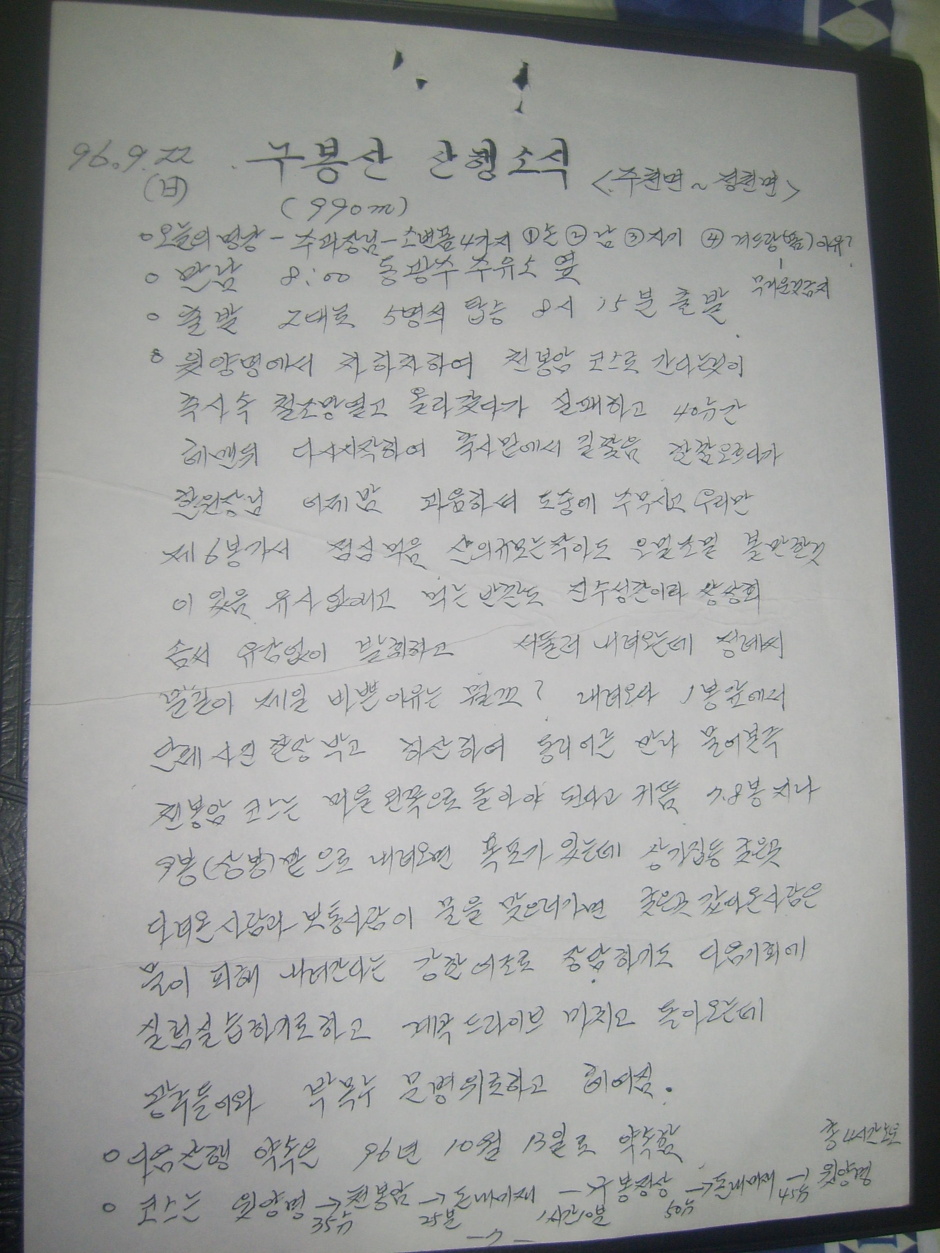 96.9.22 구봉산 산행소식 <주천면~정천면>
(日) (990m)
○오늘의 명강 - 주과장님 - 소변폼4가지 ①은 ② 남 ③자기 ④
○ 만남 8:00 동광주 주유소 옆 무거운것금지
○ 출발 2대로 5명씩 탑승 8시 15분 출발
○ 윗양명에서 차하차하여 천봉암 코스로 간다는것이
축사속 철조망열고 올라갔다가 실패하고 40分간
헤멘뒤 다시시작하여 축사밑에서 길찾음 한참오르다가
한원장님 어제밤 과음하셔 도중에 주무시고 우리만
제6봉가서 점심먹음 산의규모는작아도 오밀조밀 볼만한것
이 있음 유사 먹는반찬도 진수성찬이라
솜씨 유감없이 발휘하고 서둘러 내려오는데
발길이 제일 바쁜이유는 뭘꼬? 내려와 1봉앞에서
단체사진 한방 박고 하산하여 동리어른 만나 물어본즉
천봉암 코스는 마을 왼쪽으로 돌아야 된다고 가르침 7.8봉 지나
9봉(상봉)밑으로 내려오면 폭포가 있는데 상가집등 궂은곳
다녀온사람과 보통사람이 물을 맞으러가면 궂은곳 갔다온사람은
물이 피해 내려간다는 강한어조로 장담하기도 다음기회에
실험실습하기로하고 계곡 드라이브 마치고 돌아오는데
광주들어와 박목수 문병위로하고 헤어짐.
○다음산행 약속은 96년 10월 13일로 약속함 총4시간소요
○ 코스는 윗양명 →35分 천봉암 →25분 돈내미재 →1시간10분 구봉정상 →50分 돈내미재 →45分 윗양명
-7-